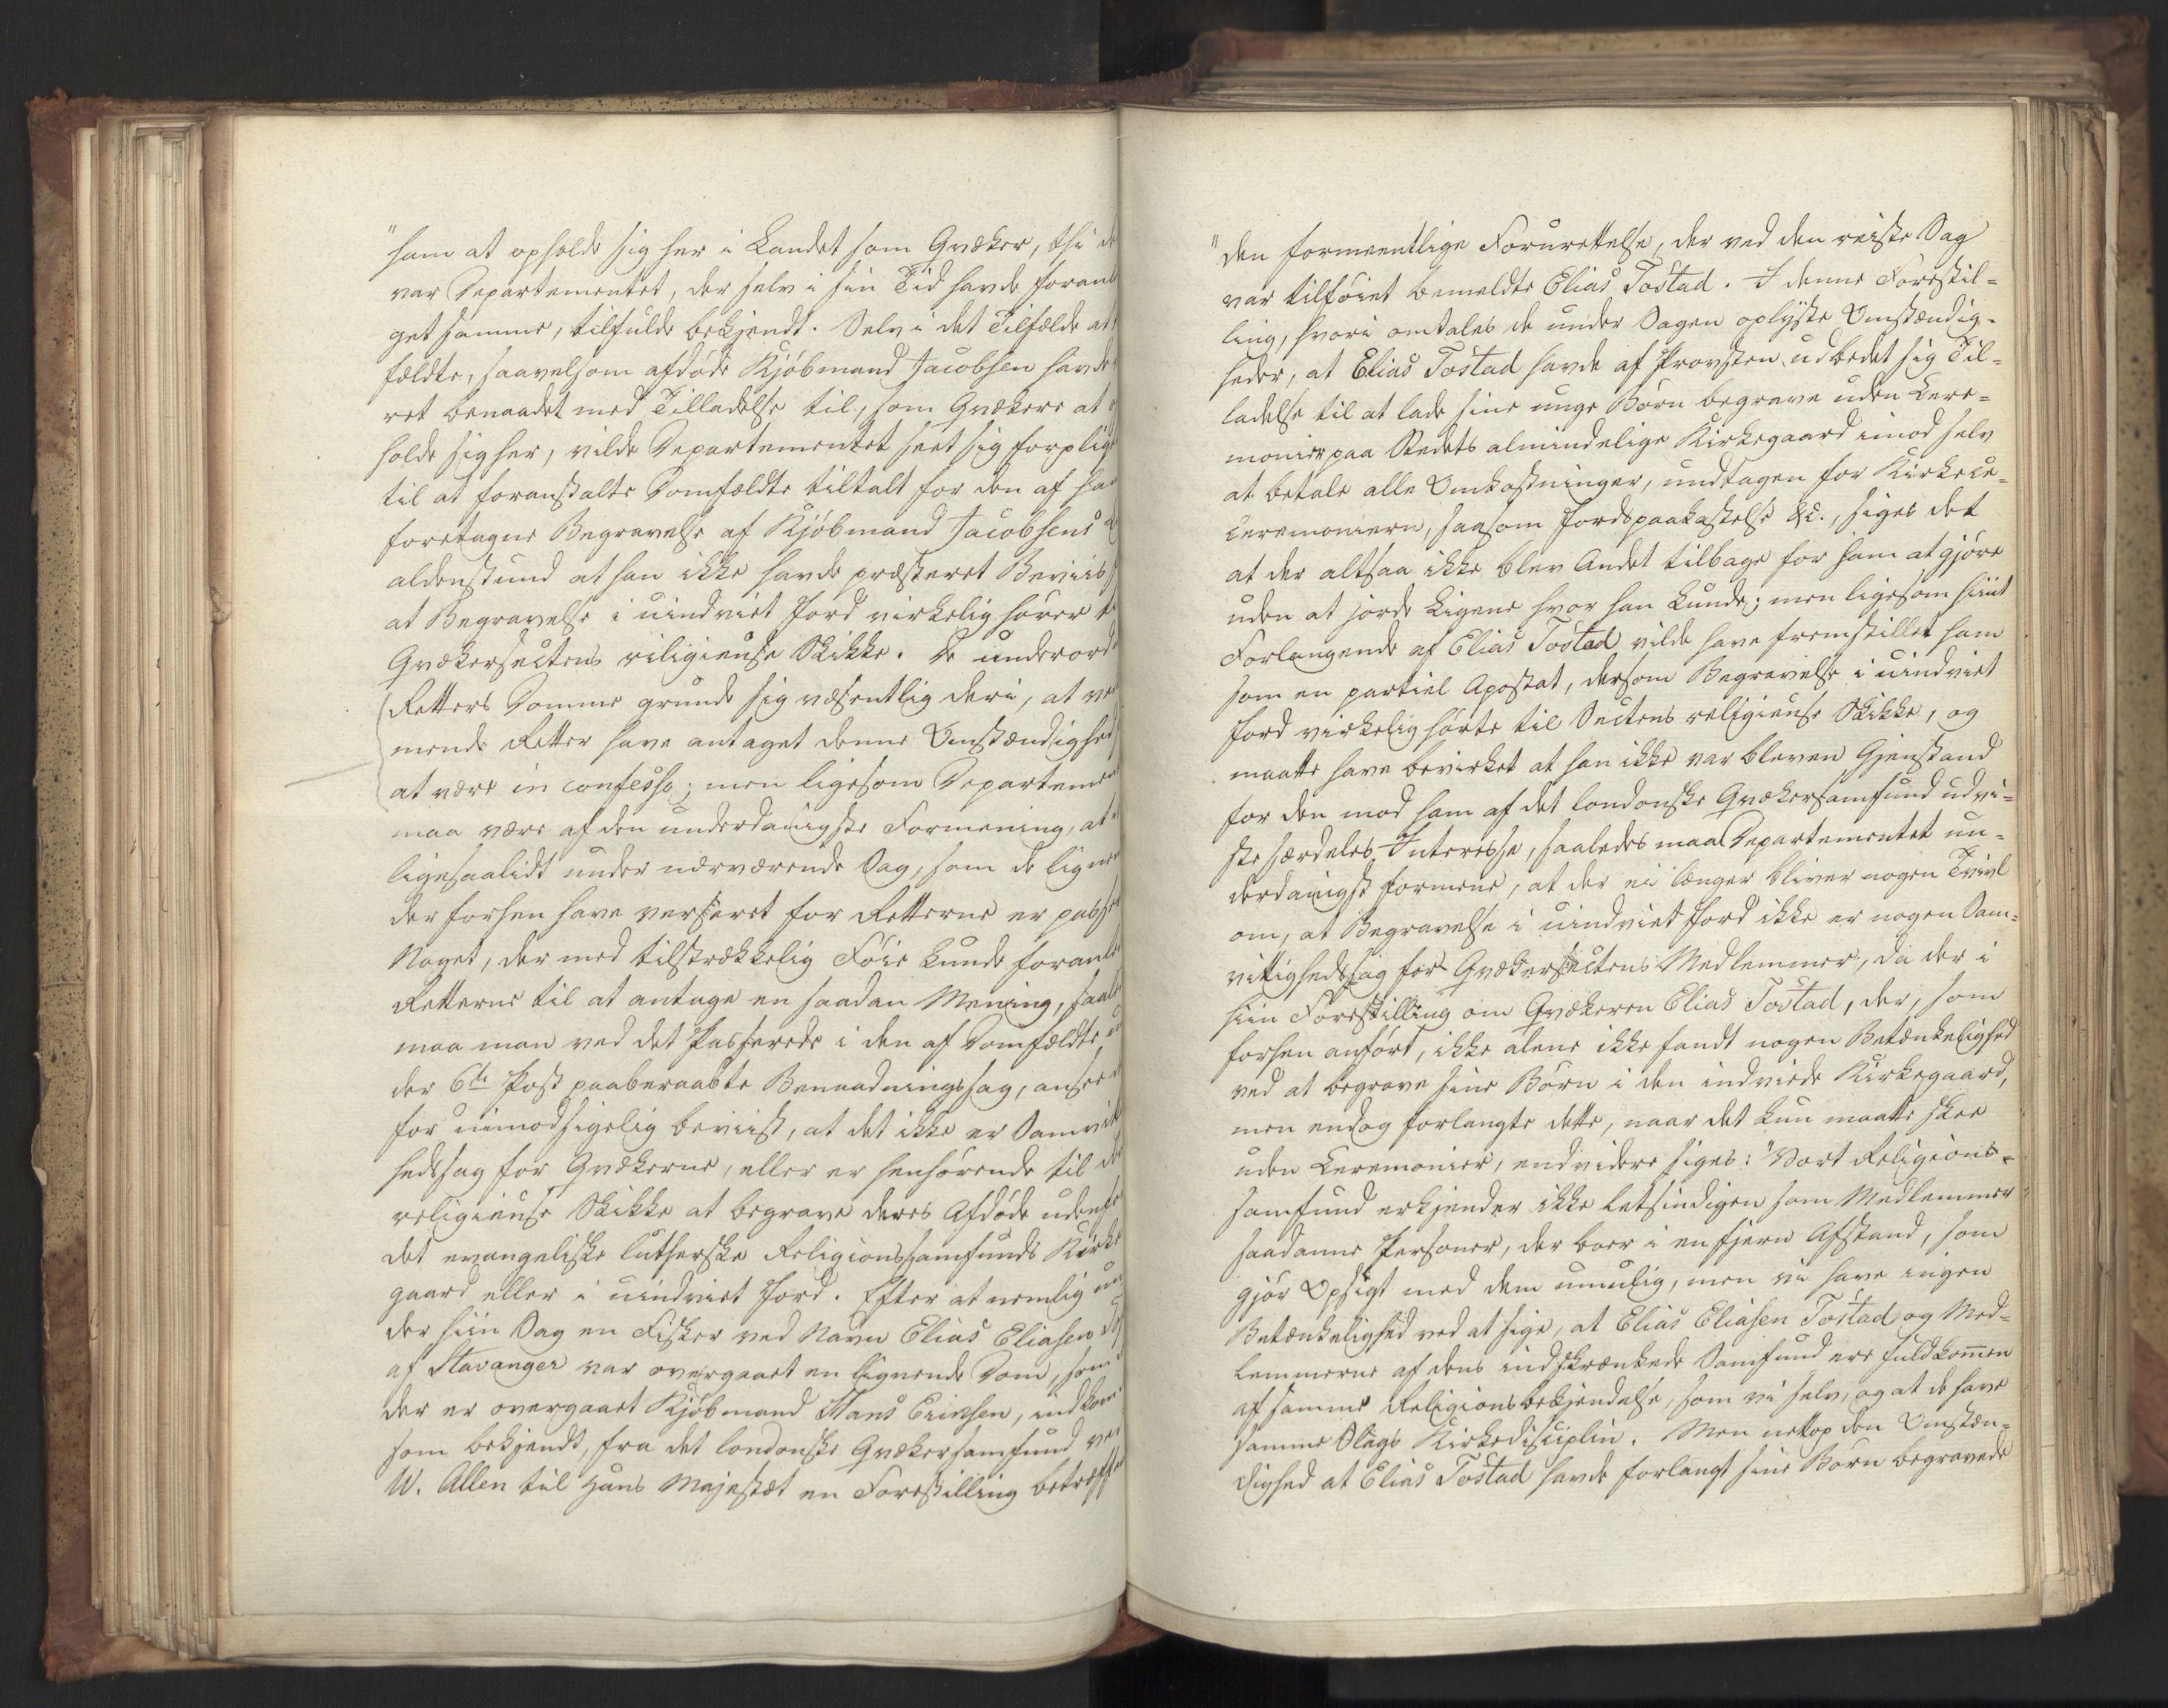 "ham at opholde sig her i Landet som Qvæker, thi
var Departementet, der selv i sin Tid havde foran
get samme, tilfulde bekjendt. Selv i det Tilfælde at
fældte, saavelsom afdøde Kjöbmand Jacobsen havde
ret benaadet med Tilladelse til, som Qvækere at
holde sig her, vilde Departementet seet sig forplig
til at foranstalte Domfældte tiltalt for den af ha
foretagne Begravelse af Kjöbmand Jacobsens
aldenstund at han ikke havde præsteret Beviis
at Begravelse i uindviet Jord virkelig hörer
Qvækersectens religieuse Skikke. De underord
Retters Domme grunde sig væsentlig deri, at ved
mende Retter have antaget denne Omstændighed
at være in confesso; men ligesom Departemen
maa være af den underdanigste Formening, at
ligesaalidt under nærværende Sag, som de lignen
der forhen have verseret for Retterne er passe
Noget, der med tilstrækkelig Föie kunde foranle
Retterne til at antage en saadan Mening, saale
maa man ved det Passerede i den af Domfældte
der 6te Post paaberaabte Benaadningssag, ansee
for uimodsigelig beviist, at det ikke er Samvit
hedssag for Qvækerne, eller er henhörende til de
religieuse Skikke at begrave deres Afdöde udenfo
det evangeliske lutherske Religionssamfunds Kirke
gaard eller i uindviet Jord. Efter at nemlig un
der hiin Sag en Fisker ved Navn Elias Eliasen
af Stavanger var overgaaet en lignende Dom, som
der er overgaaet Kjöbmand Hans Ericksen, indkom
som bekjendt, fra det londonske Qvækersamfund ved
W. Allen til Hans Majestæt en Forestilling betreff
"den formeentlige Forurettelse, der ved den reiste Sag
var tilföiet bemeldte Elias Tostad. I denne Forestil-
ling, hvori omtales de under Sagen oplyste Omstændig-
heder, at Elias Tostad havde af Provsten udbedet sig Til-
ladelse til at lade sine unge Börn begrave uden Cere-
monier paa Stedets almindelige Kirkegaard imod selv
at betale alle Omkostninger, undtagen for Kirkece-
ceremonieren, saasom Jordspaakastelse &c., siges det
at der altsaa ikke blev Andet tilbage for ham at gjöre
uden at jorde Ligene hvor han kunde; men ligesom hiint
Forlangende af Elias Tostad vilde have fremstillet ham
som en partiel Apostat, dersom Begravelse i uindviet
Jord virkelig hörte til Sectens religieuse Skikke, og
maatte have bevirket at han ikke var bleven Gjenstand
for den mod ham af det londonske Qvækersamfund udvi-
ste særdeles Interesse, saaledes maa Departementet un-
derdanigst formene, at der ei længer bliver nogen Tvivl
om, at Begravelse i uindviet Jord ikke er nogen Sam-
vittighedssag for Qvækersectens Medlemmer, da der i
hiin Forestilling om Qvækeren Elias Tostad, der, som
forhen anfört, ikke alene ikke fandt nogen Betænkelighed
ved at begrave sine Börn i den indviede Kirkegaard,
men endog forlangte dette, naar det kun maatte skee
uden Ceremonier, endvidere siges: "Vort Religions-
samfund erkjender ikke letsindigen som Medlemmer
saadanne Personer, der boer i en fjern Afstand, som
gjör Opsigt med dem umulig, men vi have ingen
Betænkelighed ved at sige, at Elias Eliasen Tostad og Med-
lemmerne af dens indskrænkede Samfund ere fuldkommen
af samme Religionsbekjendelse, som vi selv, og at de have
samme Slags Kirkedisciplin. Men netop den Omstæn-
dighed at Elias Tostad havde forlangt sine Börn begravede